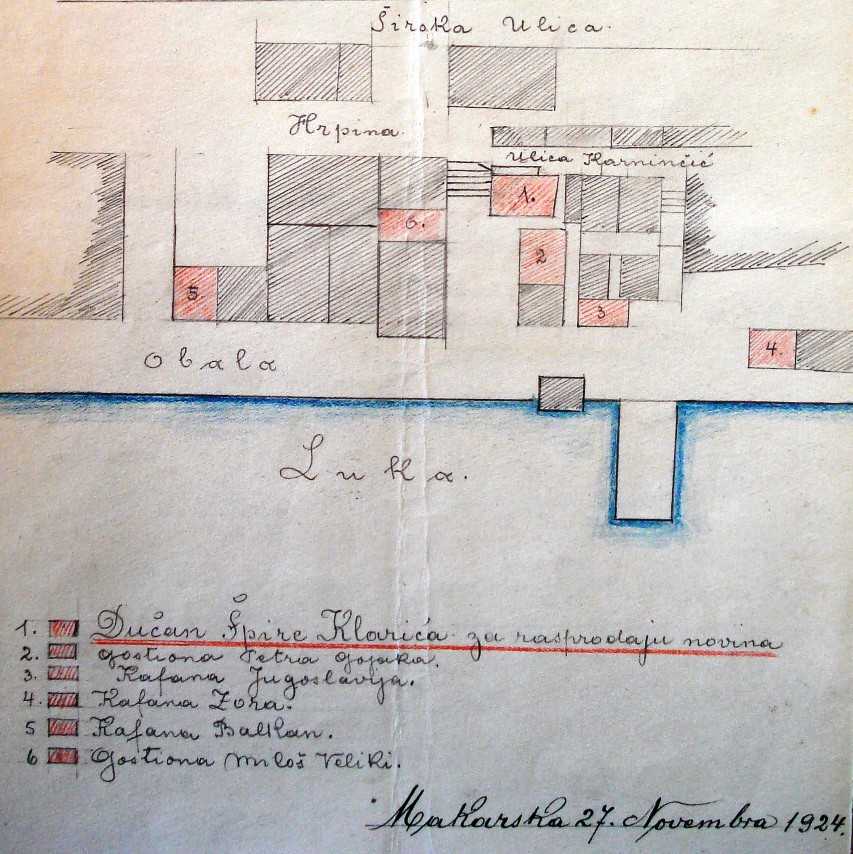 Široka Ulica.
Hrpina.
Ulica Harninčić
1.
6.
2
5.
3
4.
Obala
Luka.
1. Dučan Špire Klarića za rasprodaju novina
2. gostiona Petra Gojaka.
3. Kafana Jugoslavija.
4. Kafana Zora.
5 Kafana Balkan.
6 Gostiona Miloš Veliki.
Makarska 27. Novembra 1924.